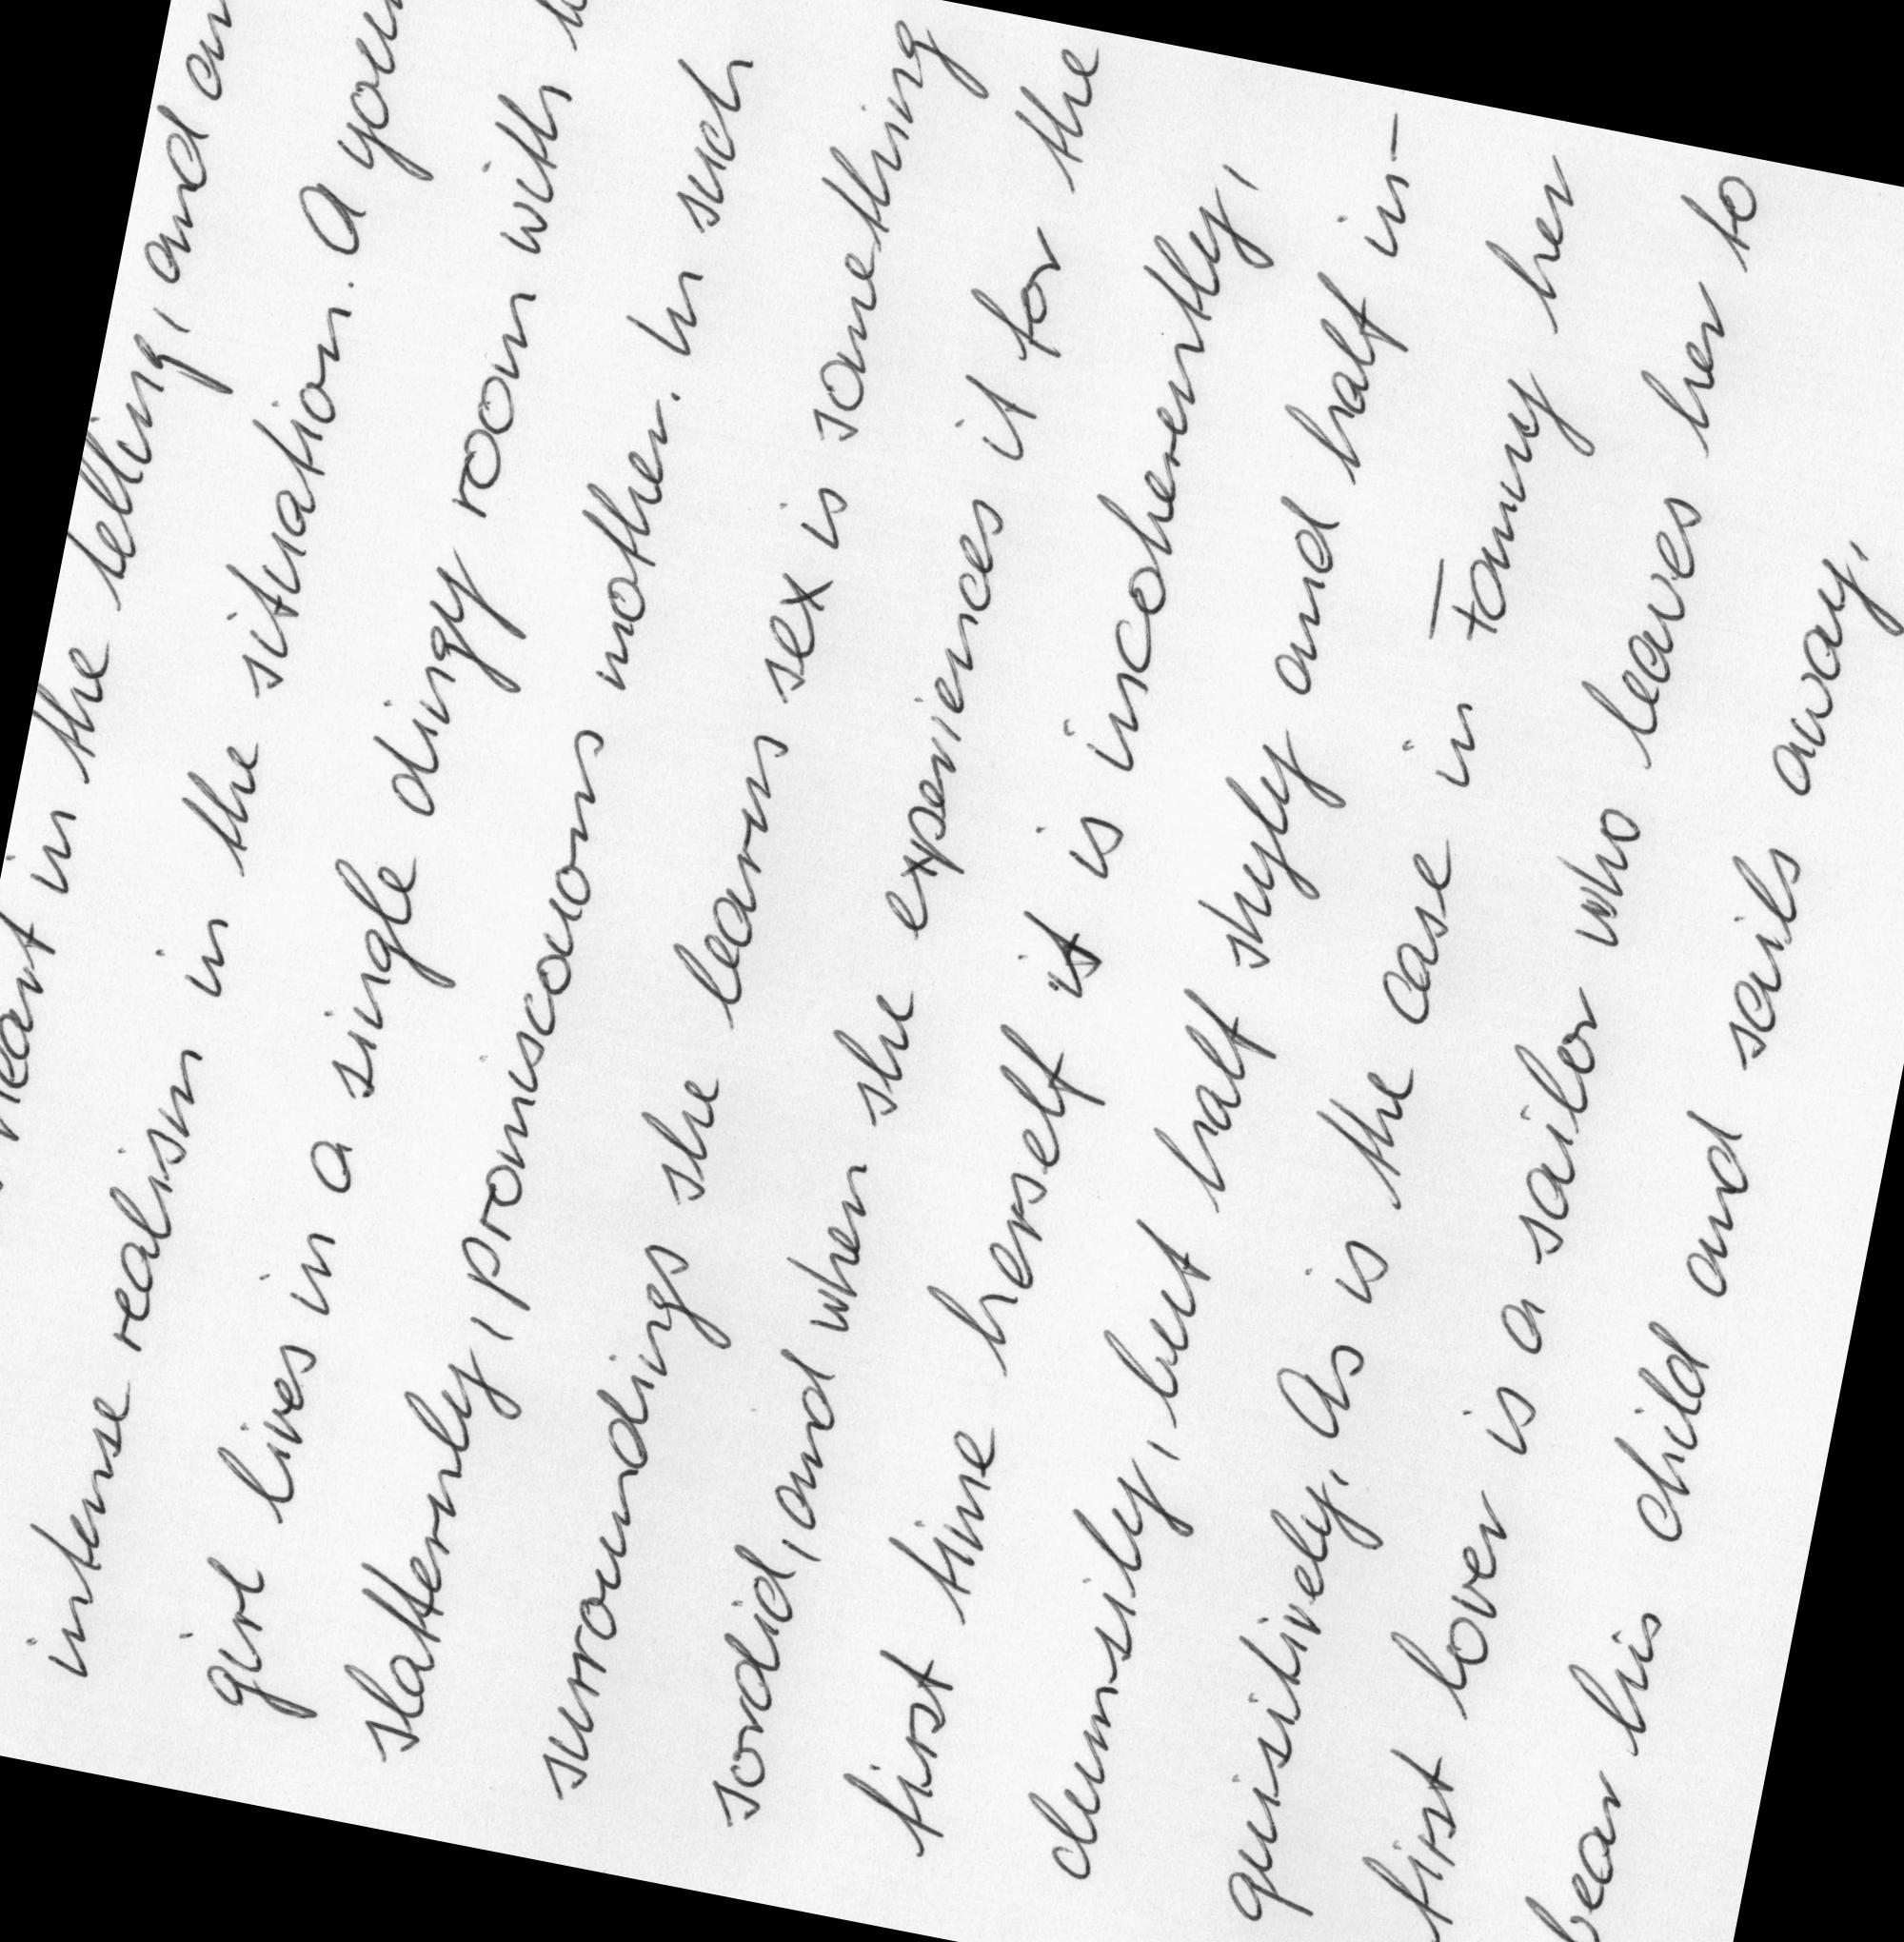 in the telling, and an
intense realism in the situation. A
girl lives in a single dingy room with
slatternly, promiscuous mother. In such
surroundings she learns sex is something
sordid, and when she experiences it for the
first time herself it is incoherently,
clumsily, but half shyly and half in-
quisitively. As is the case in Fanny her
first lover is a sailor who leaves her to
bear his child and sails away.